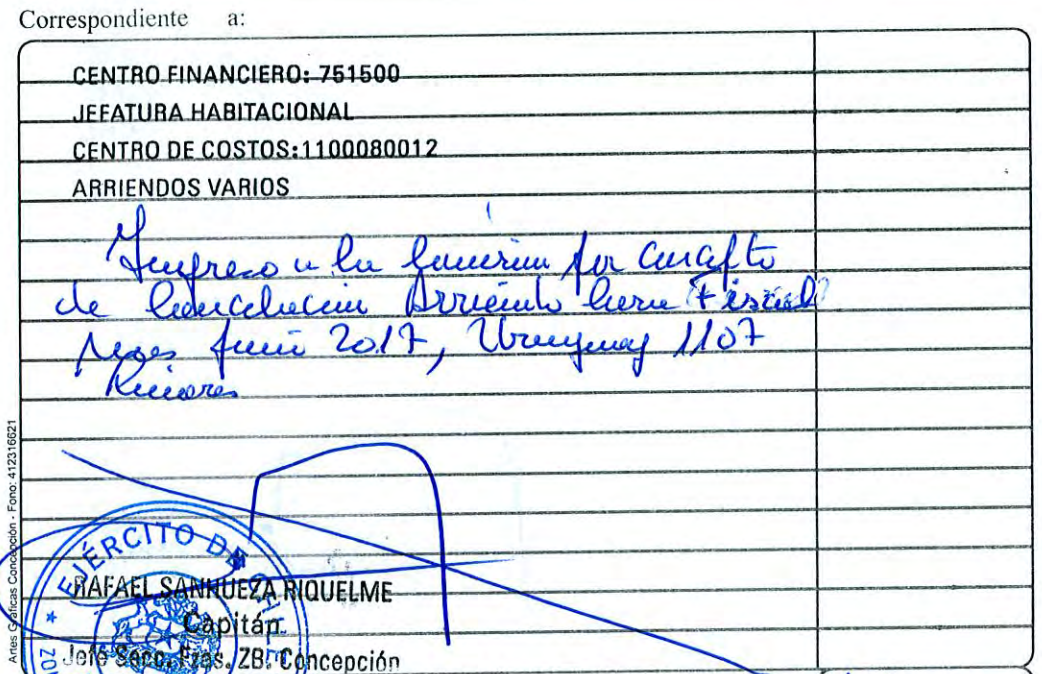 Correspondiente a:
CENTRO FINANCIERO: 751500
JEFATURA HABITACIONAL
CENTRO DE COSTOS:1100080012
ARRIENDOS VARIOS
Ingreso a la por concepto
de Arriendo Fiscal
2017, Uruguay 1107
Linares
Artes Gráficas Concepción - Fono: 412316621
EJÉRCITO DE CHILE
RAFAEL SANHUEZA RIQUELME
Capitán
Jefe Secc. Fzas. ZB. Concepción